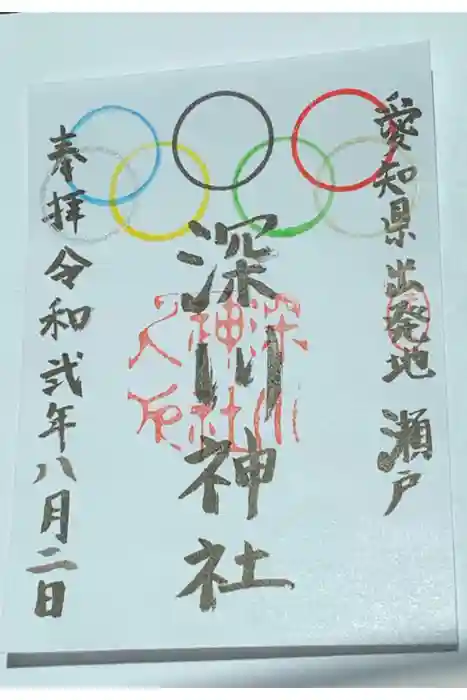 愛知県出発地 瀬戸
深川神社
奉拝 令和弐年八月二日
深川
神社